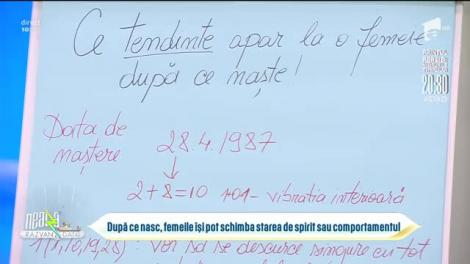 direct
Ce tendinte apar la o femeie
după ce naște!
20:30
ASTĂZI
Data de
naștere
28.4.1987
2+8=10 1+0=1 - vibratia interioară
NEATZA
RĂZVAN DANI
După ce nasc, femeile își pot schimba starea de spirit sau comportamentul
1(1,10,19,28) - vor să se descurce singure cu tot